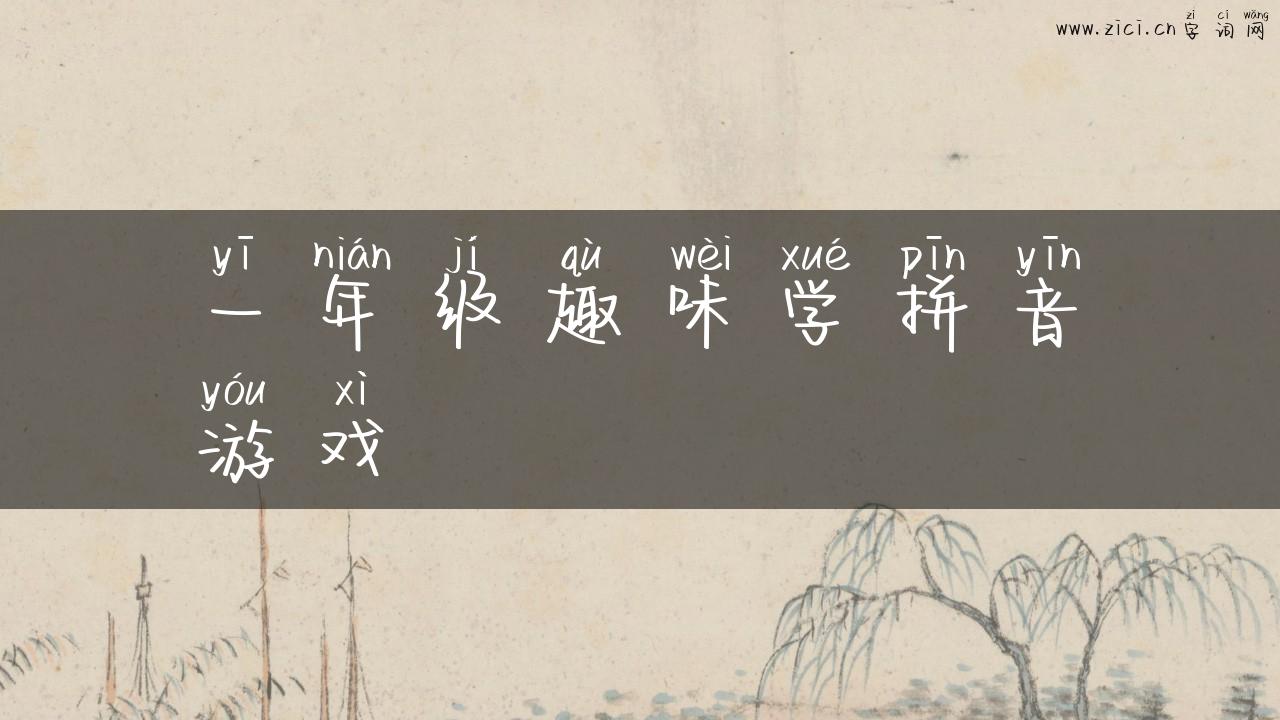 zì cí wǎng
www.zici.cn 字 词 网
yī nián jí qù wèi xué pīn yīn
一 年 级 趣 味 学 拼 音
yóu xì
游 戏